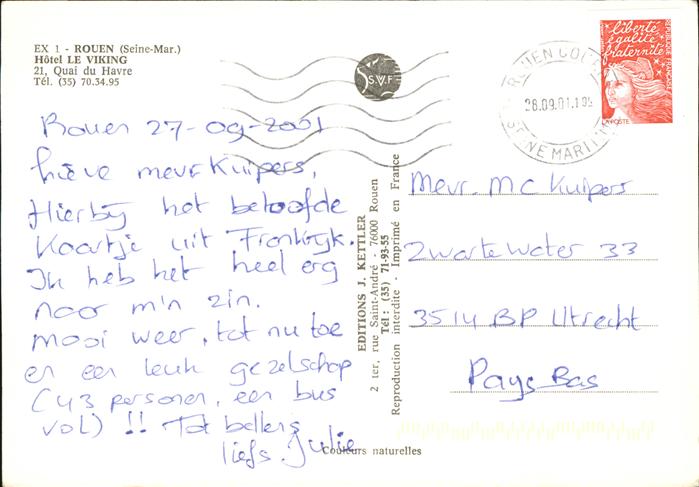 EX 1 - ROUEN (Seine-Mar.)
Hôtel LE VIKING
21, Quai du Havre
Tél. (35) 70.34.95
S.V.F
liberté
égalité
fraternité
REPUBLIQUE FRANÇAISE
LA POSTE
28.09.01
Rouen 27-09-2001
Lieve mevr Kuipers,
Hierbij het beloofde
Kaartje uit Frankrijk.
Ik heb het heel erg
naar m'n zin.
Mooi weer, tot nu toe
en een leuk gezelschap
(43 personen, een bus
vol) !! Tot bellens
liefs Julie
EDITIONS J. KETTLER
2 ter, rue Saint-André - 76000 Rouen
Tél : (35) 71-93-55
Reproduction interdite - Imprimé en France
Mevr. MC Kuipers
Zwarte Water 33
3514 BP Utrecht
Pays Bas
Couleurs naturelles